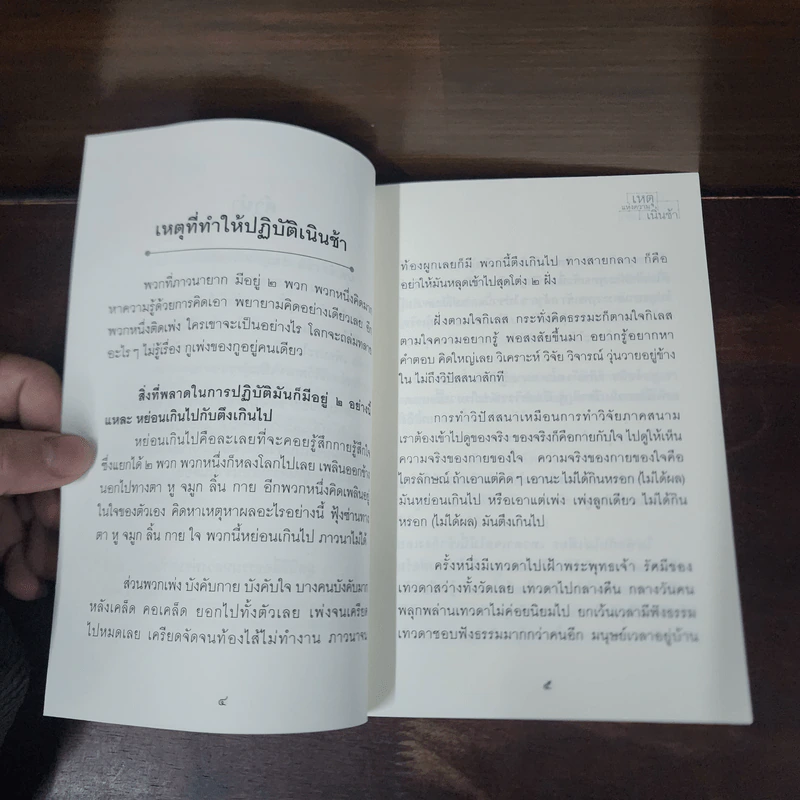 เหตุที่ทำให้ปฏิบัติเนิ่นช้า
พวกที่ภาวนายาก มีอยู่ ๒ พวก พวกหนึ่งคิดมาก
หาความรู้ด้วยการคิดเอา พยายามคิดอย่างเดียวเลย อีก
พวกหนึ่งติดเพ่ง ใครเขาจะเป็นอย่างไร โลกจะถล่มทลาย
อะไรๆ ไม่รู้เรื่อง กูเพ่งของกูอยู่คนเดียว
สิ่งที่พลาดในการปฏิบัติมันก็มีอยู่ ๒ อย่างนี้
แหละ หย่อนเกินไปกับตึงเกินไป
หย่อนเกินไปคือละเลยที่จะคอยรู้สึกกายรู้สึกใจ
ซึ่งแยกได้ ๒ พวก พวกหนึ่งก็หลงโลกไปเลย เพลินออกข้าง
นอกไปทางตา หู จมูก ลิ้น กาย อีกพวกหนึ่งคิดเพลินอยู่
ในใจของตัวเอง คิดหาเหตุหาผลอะไรอย่างนี้ ฟุ้งซ่านทาง
ตา หู จมูก ลิ้น กาย ใจ พวกนี้หย่อนเกินไป ภาวนาไม่ได้
ส่วนพวกเพ่ง บังคับกาย บังคับใจ บางคนบังคับมาก
หลังเคล็ด คอเคล็ด ยอกไปทั้งตัวเลย เพ่งจนเครียด
ไปหมดเลย เครียดจัดจนท้องไส้ไม่ทำงาน ภาวนาจน
๔
เหตุ
แห่งความ
เนิ่นช้า
ท้องผูกเลยก็มี พวกนี้ตึงเกินไป ทางสายกลาง ก็คือ
อย่าให้มันหลุดเข้าไปสุดโต่ง ๒ ฝั่ง
ฝั่งตามใจกิเลส กระทั่งคิดธรรมะก็ตามใจกิเลส
ตามใจความอยากรู้ พอสงสัยขึ้นมา อยากรู้อยากหา
คำตอบ คิดใหญ่เลย วิเคราะห์ วิจัย วิจารณ์ วุ่นวายอยู่ข้าง
ใน ไม่ถึงวิปัสสนาสักที
การทำวิปัสสนาเหมือนการทำวิจัยภาคสนาม
เราต้องเข้าไปดูของจริง ของจริงก็คือกายกับใจ ไปดูให้เห็น
ความจริงของกายของใจ ความจริงของกายของใจคือ
ไตรลักษณ์ ถ้าเอาแต่คิดๆ เอานะ ไม่ได้กินหรอก (ไม่ได้ผล)
มันหย่อนเกินไป หรือเอาแต่เพ่ง เพ่งลูกเดียว ไม่ได้กิน
หรอก (ไม่ได้ผล) มันตึงเกินไป
ครั้งหนึ่งมีเทวดาไปเฝ้าพระพุทธเจ้า รัศมีของ
เทวดาสว่างทั้งวัดเลย เทวดาไปกลางคืน กลางวันคน
พลุกพล่านเทวดาไม่ค่อยนิยมไป ยกเว้นเวลามีฟังธรรม
เทวดาชอบฟังธรรมมากกว่าคนอีก มนุษย์เวลาอยู่บ้าน
๕